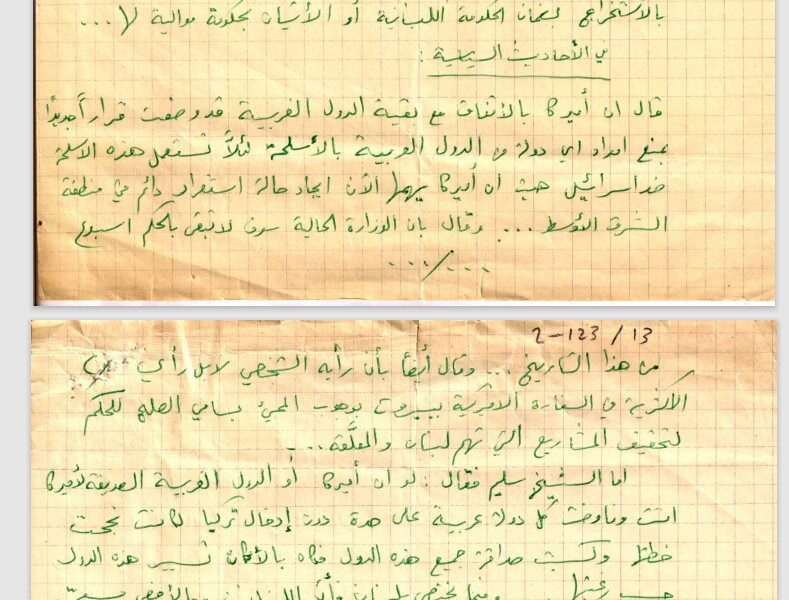 بالاستخراج لضمان الحكومة اللبنانية أو الأتيان بحكومة موالية لها ...
في الأحاديث السياسية :
قال ان أميركا بالأتفاق مع بقية الدول الغربية قد وضعت قراراً جديداً
بمنع امداد اي دولة من الدول العربية بالأسلحة لئلاَّ تستعمل هذه الاسلحة
ضد اسرائيل حيث ان أميركا يهمها الآن ايجاد حالة استقرار دائم في منطقة
الشرق الأوسط ... وقال بان الوزارة الحالية سوف لا تبقى بالحكم اسبوع
... / ...
2-123 / 13
من هذا التاريخ ... وقال أيضاً بأن رأيه الشخصي لا بل رأي
الاكثرية في السفارة الاميركية ببيروت بوجوب المجيء بسامي الصلح للحكم
لتحقيق المشاريع التي تهم لبنان والمعلَّقة ...
اما الشيخ سليم فقال : لو ان أميركا أو الدول الغربية الصديقة لأميركا
اتت وفاوضت كل دولة عربية على حدة دون إدخال تركيا لكانت نجحت
خطتها وكسبت صداقة جميع هذه الدول فكان بالأمكان تسيير هذه الدول
حسب رغبتها